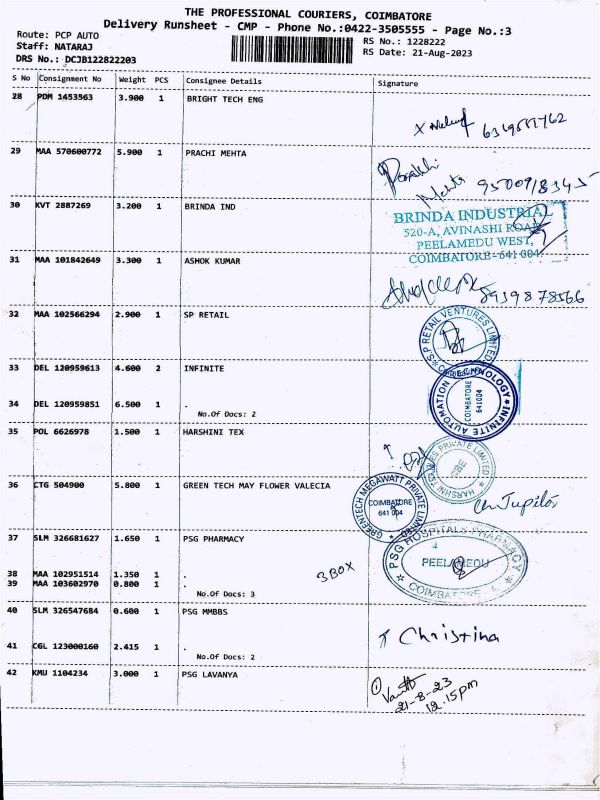 THE PROFESSIONAL COURIERS, COIMBATORE
Delivery Runsheet - CMP - Phone No.:0422-3505555 - Page No.:3
Route: PCP AUTO
Staff: NATARAJ
DRS No.: DCJB122822203
RS No.: 1228222
RS Date: 21-Aug-2023
S No Consignment No Weight PCS Consignee Details Signature
28 PDM 1453563 3.900 1 BRIGHT TECH ENG
29 MAA 570600772 5.900 1 PRACHI MEHTA
Mehta
30 KVT 2887269 3.200 1 BRINDA IND
BRINDA INDUSTRIAL
520-A, AVINASHI ROAD
PEELAMEDU WEST,
COIMBATORE-641 004.
31 MAA 101842649 3.300 1 ASHOK KUMAR
8939878566
32 MAA 102566294 2.900 1 SP RETAIL
SP RETAIL VENTURES LIMITED
33 DEL 120959613 4.600 2 INFINITE
INFINITE AUTOMATION TECHNOLOGY
COIMBATORE
641004
34 DEL 120959851 6.500 1 .
No.Of Docs: 2
35 POL 6626978 1.500 1 HARSHINI TEX
HARSHINI TEX PRIVATE LIMITED
36 CTG 504900 5.800 1 GREEN TECH MAY FLOWER VALECIA
GREENTECH MEGAWATT PRIVATE LIMITED
COIMBATORE
641 004
37 SLM 326681627 1.650 1 PSG PHARMACY
PSG HOSPITALS PHARMACY
PEELAMEDU
COIMBATORE
38 MAA 102951514 1.350 1 .
3 BOX
39 MAA 103602970 0.800 1 .
No.Of Docs: 3
40 SLM 326547684 0.600 1 PSG MMBBS
Christina
41 CGL 123000160 2.415 1 .
No.Of Docs: 2
42 KMU 1104234 3.000 1 PSG LAVANYA
21-8-23
12.15pm